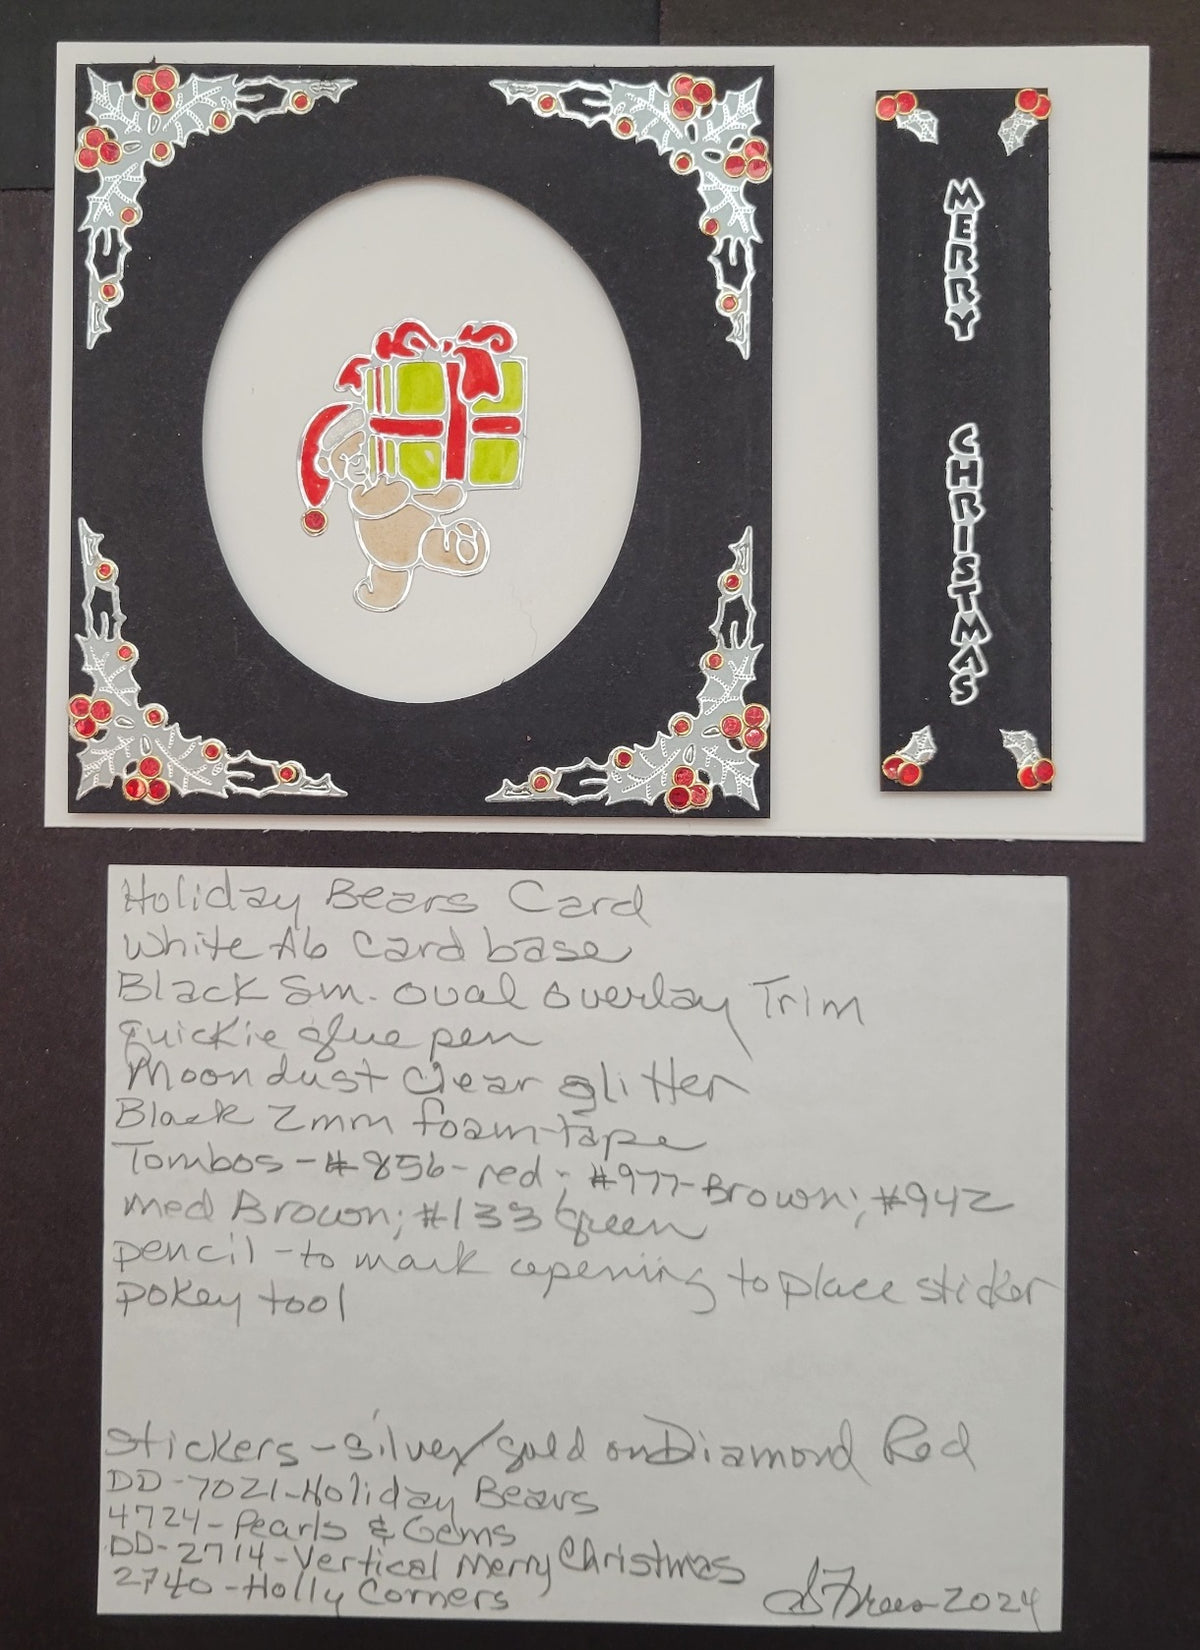 MERRY
CHRISTMAS
Holiday Bears Card
White A6 Card base
Black Sm. oval overlay Trim
quickie glue pen
Moondust clear glitter
Black 2mm foam tape
Tombos - #856 - red; #977 - Brown; #942
med Brown; #133 green
pencil - to mark opening to place sticker
pokey tool
Stickers - Silver/gold on Diamond Red
DD-7021-Holiday Bears
4724-Pearls & Gems
DD-2714-Vertical Merry Christmas
2740-Holly Corners
2024